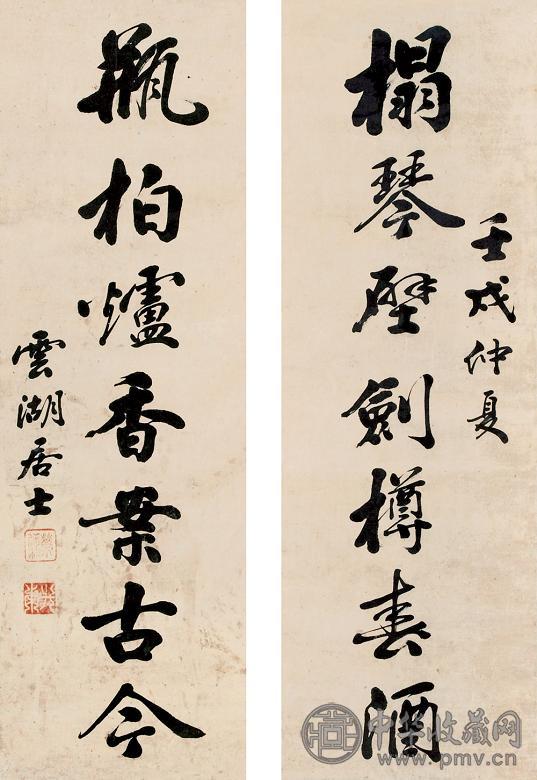 榻琴壁劍樽春酒
壬戌仲夏
瓶柏爐香案古今
雲湖居士
中华收藏网
www.pmv.cn